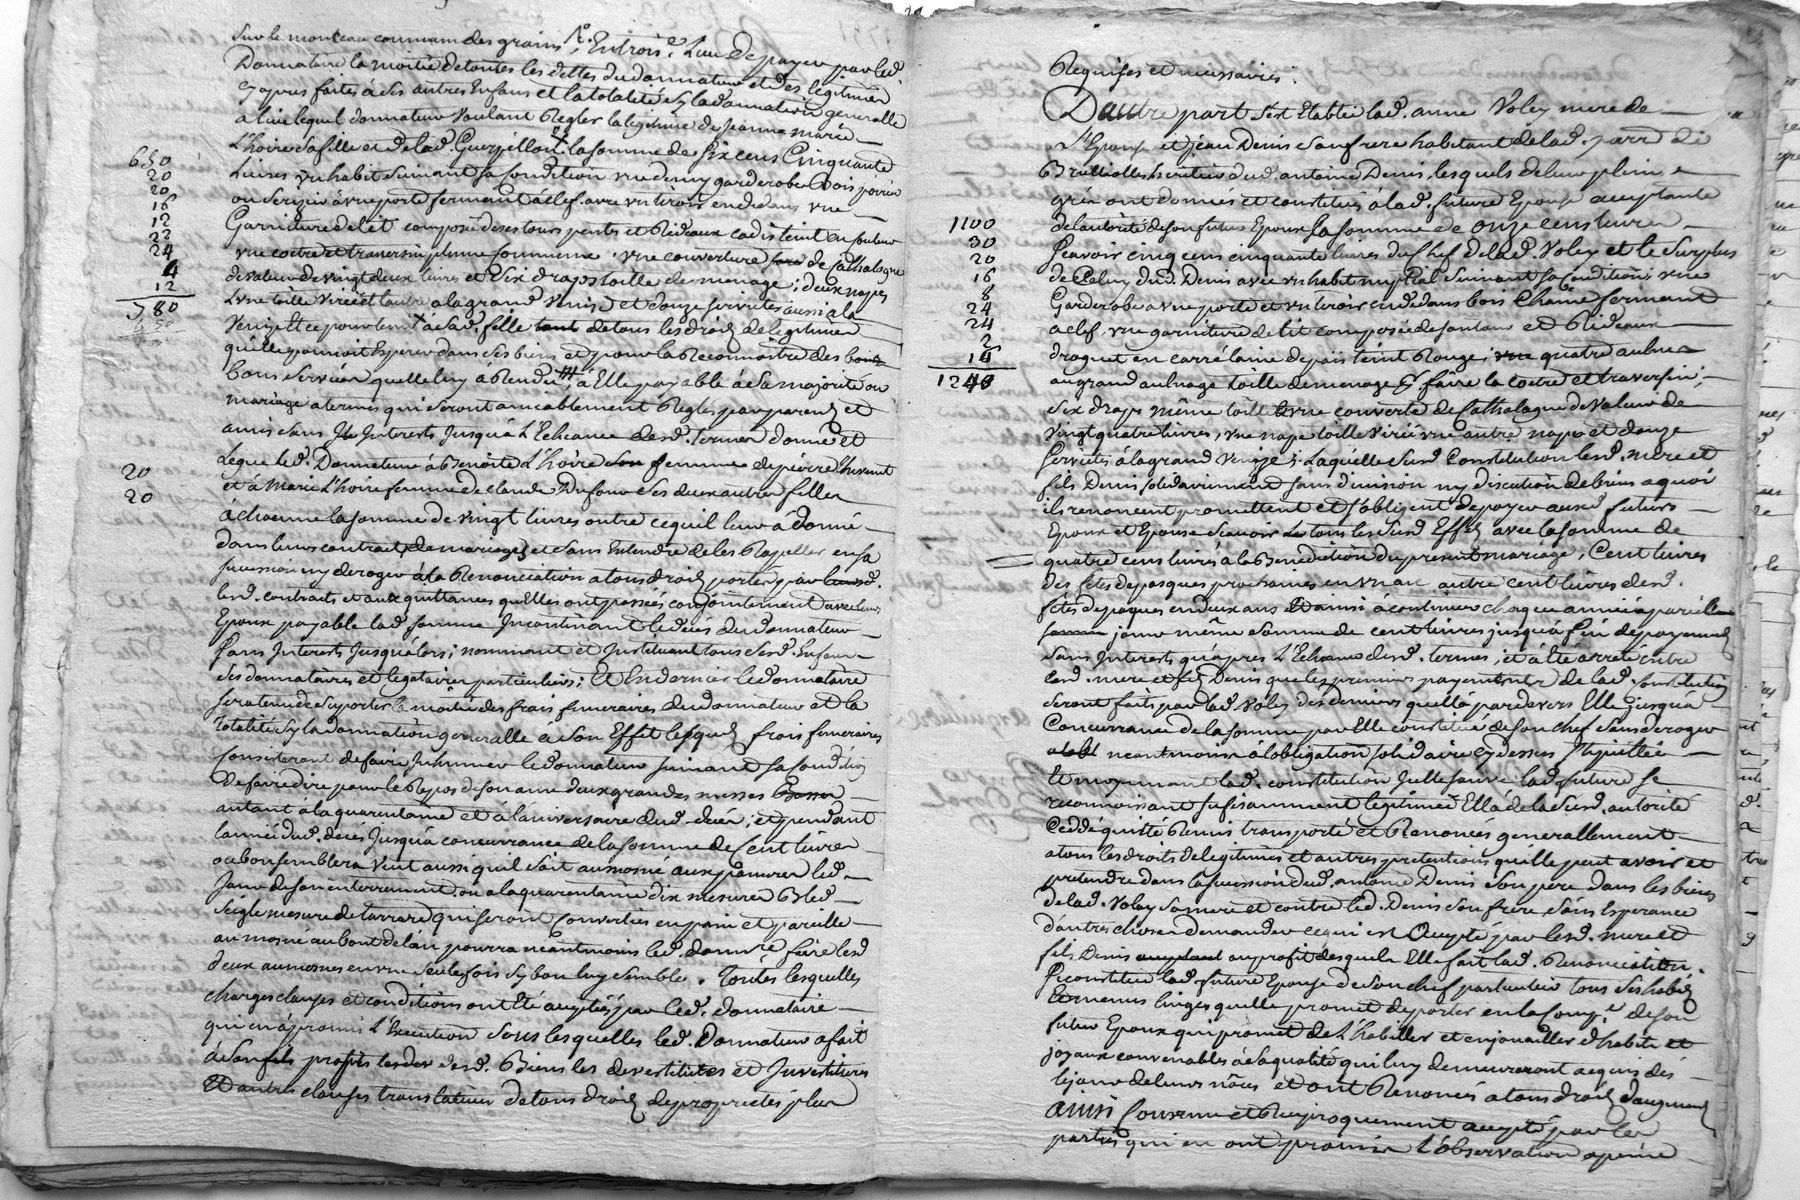 Sur le monceau commun des grains 1°. En trois.e Lieu de payer par led.
Donnataire la moitié de toutes les dettes du donnateur et des legitimes
cy apres faites à ses autres Enfans et la totalité sy la donnation generalle
a lieu lequel donnateur voulant Regler la legitime de Jeanne Marie
L'hoire sa fille et de lad. la somme de six cens Cinquante
650
20
20
16
12
22
24
4
12
780
Livres un habit suivant sa Condition une garderobe Bois poirier
ou serizier à une porte fermant à clef avec un tiroir en dedans une
Garniture de lit composée de ses tours pentes et Rideaux cadis teint en couleur
une coitre et traversin plume commune, une couverture de Cathalogne
de valeur de vingt deux livres et Six draps toille de menage; deux napes
L'une toille et l'autre a la grand Venise et douze serviettes aussi a la
Venize et ce pour tenir à sad. fille de tous les droits de legitimes
qu'elle pourroit Esperer dans ses biens et pour la Reconnoitre des
bons services quelle luy à Rendu à Elle payable à sa majorité ou
mariage a termes qui seront amiablement Reglés par parens et
amis sans Interests Jusquà L'Echeance desd. termes donne et
20
20
Legue led. Donnateur à Benoite L'hoire femme de pierre
et à Marie L'hoire femme de claude Dufour ses deux autres filles
à chacune la somme de vingt livres outre ce quil leur à donné
dans leurs contrats de mariages et sans Entendre de les Rapeller en sa
succession ny deroger à la Renonciation a tous droits portés par
lesd. contrats et aux quittances qu'Elles ont passées conjointement avec leurs
Epoux payable lad. somme Incontinant le décès du donnateur
sans Interests Jusqu'alors; nommant et Instituant tous sesd. Enfans
ses donnataires et legataires particuliers; Et En dernier led donnataire
sera tenu de suporter la moitié des frais funeraires du donnateur et la
totalité sy la donnation generalle à son Effet lesquels frais funeraires
consisteront de faire Inhumer led donnateur suivant sa condition
de faire dire pour le Repos de son ame deux grandes messes
autant à la quarantaine et à l'aniversaire dud. deces; et pendant
l'année dud. décès Jusqu'à concurrance de la somme de Cent livres
ou bon semblera veut aussi quil soit aumoné aux pauvres le
Jour de son enterrement ou a la quarantaine dix mesures Bled
Seigle mesure de tarrare qui seront Converties en pain et pareille
aumosne au bout de l'an pourra neantmoins led. donnre. faire lesd
deux aumosnes en une seule fois sy bon luy semble. Toutes lesquelles
charges clauses et conditions ont Eté acceptées par led. donnataire
qui en à promis L'Execution sous lesquelles led. Donnateur a fait
à son fils desd. Biens les devestitures et Investitures
Et autres clauses translatives de tous droits de proprietés plus
Requises et necessaires.
D'autre part s'est Etablie lad. anne Voley mere de
l'Epouse et jean Denis son frere habitant de lad. parr. de
Brullioles heritier dud. antoine Denis, lesquels de leur plein
gré ont donnés et constitués à lad. future Epouse acceptante
1100
30
20
16
8
24
24
2
16
1240
de l'autorité de son futur Epoux la somme de onze cens livres
scavoir cinq cens cinquante livres du Chef de lad. Voley et le Surplus
de Celuy dud. Denis avec un habit nuptial suivant sa Condition, une
Garderobe a une porte et un tiroir en dedans bois Chaine fermant
a clef, une garniture de lit composée de son tour et Rideaux
droguet en carré laine de païs teint Rouge; quatre aulnes
au grand aulnage toille de menage p.r faire la coitre et traversin;
Six draps même toille une couverte de Cathalogne de valeur de
vingt quatre livres, une nape toille une autre nape et douze
Serviettes à la grand Venize; Laquelle susd. Constitution lesd. mere et
fils Denis solidairement sans division ny discution de biens a quoi
ils renoncent promettent et s'obligent de payer ausd. futurs
Epoux et Epouse scavoir tous les susd. Effets avec la somme de
quatre cens livres à la Benediction du present mariage, Cent livres
des fetes de paques prochaines en un an autre cent livres desd.
fetes de paques en deux ans Et ainsi à continuer chaque année à pareille
jour même somme de cent livres jusqu'à fin de payement
sans Interests qu'apres L'Echeance desd. termes; et à Eté arreté entre
lesd. mere et fils Denis que les premiers payements de lad. Constitution
seront faits par lad. Voley des deniers quelle à par devers Elle jusqu'à
Concurrance de la somme par Elle constituée de son chef sans deroger
neantmoins à l'obligation solidaire cy dessus stipullée
Et moyennant lad. constitution Icelle sauve lad. future se
reconnoissant suffisamment legitimée Ellà de la susd. autorité
Ceddé quitté Remis transporté et Renoncés generallement
a tous les droits de legitimes et autres pretentions qu'elle peut avoir et
pretendre dans la succession dud. antoine Denis son pere dans les biens
de lad. Voley sa mere et contre led. Denis son frere sans Esperance
d'autres choses demander ce qui est Accepté par lesd. mere et
fils Denis au profit desquels Elle fait lad. Renonciation.
Se constitue lad. future Epouse de son chef particulier tous ses habits
Et menus linges quelle promet de porter en la comp.e de son
futur Epoux qui promet de L'habiller et enjouailler d'habits et
joyaux convenables à sa qualité qui luy demeureront acquis dès
le jour de leurs nôces et ont Renoncés a tous droits d'augment
ainsi Convenu et Reciproquement accepté par les
parties qui en ont promis L'observation a peine